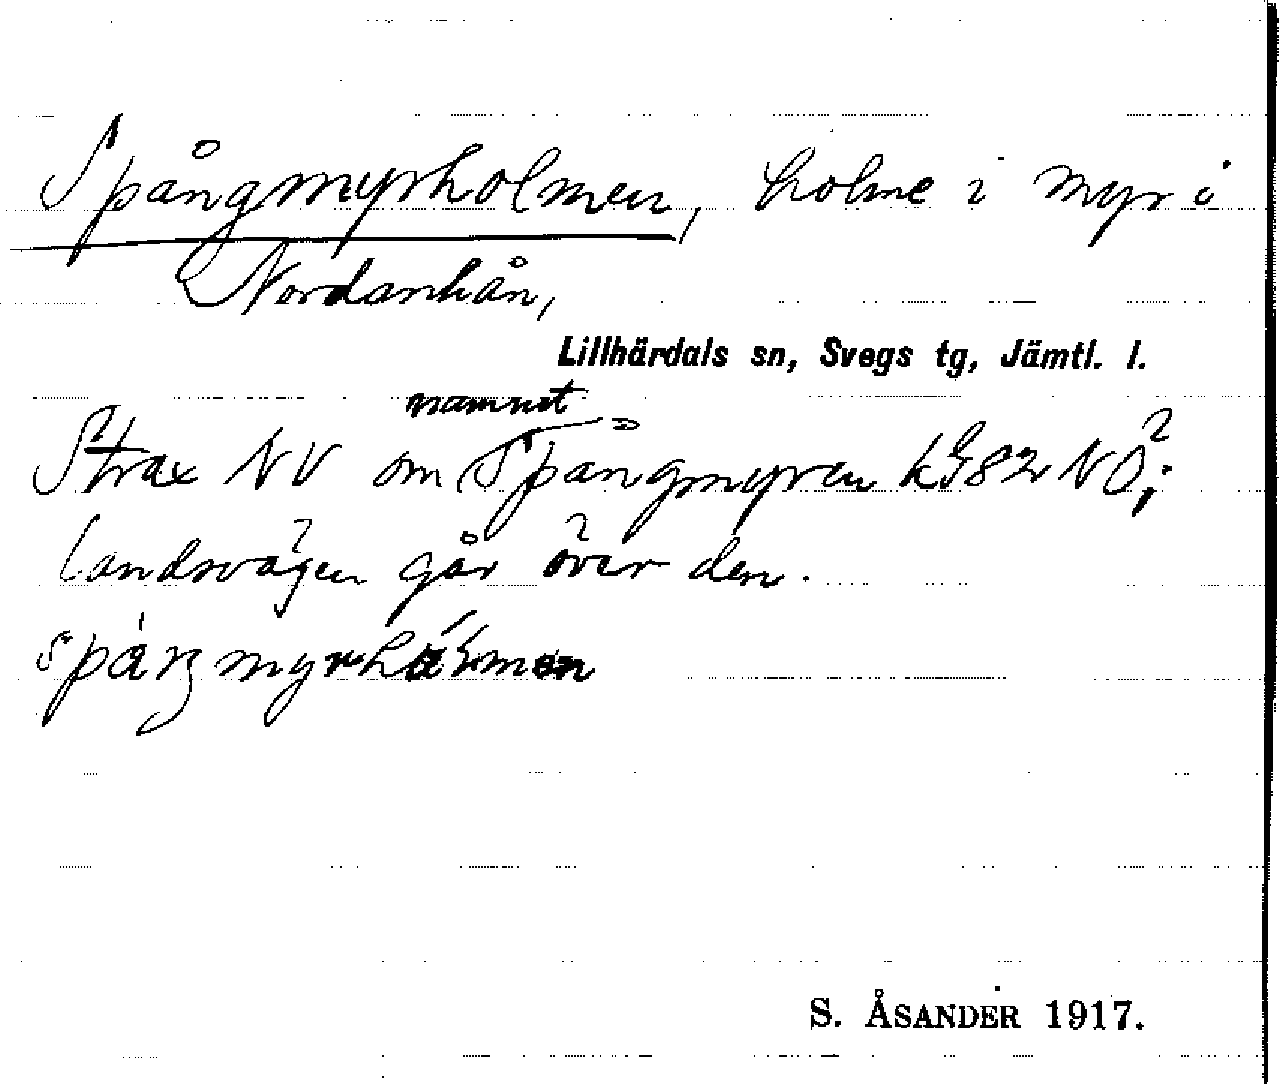 Spångmyrholmen, holme i myr i
Nordanhån,
Lillhärdals sn, Svegs tg, Jämtl. l.
namnet
Strax NV om Spångmyren kg 82 NÖ;
landsvägen går över den.
S. ÅSANDER 1917.